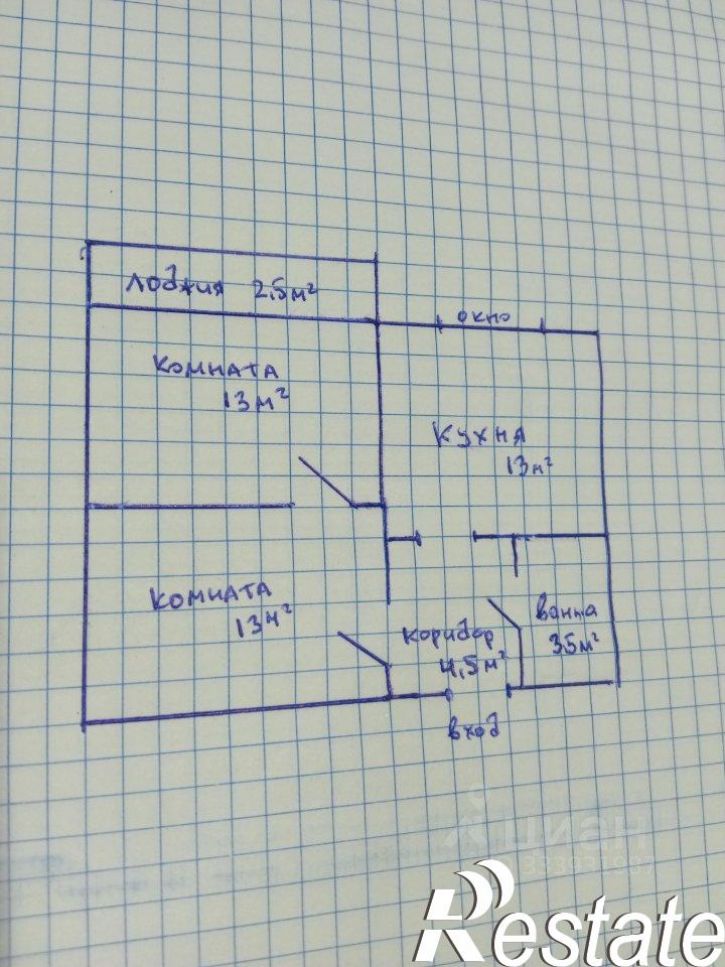 лоджия 2,5м²
окно
комната
13м²
кухня
13м²
комната
13м²
коридор
4,5м²
ванна
35м²
вход
циан
Restate